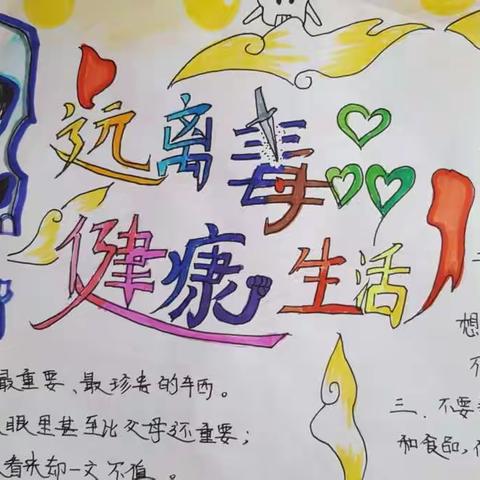 远离毒品
健康生活
最重要、最珍贵的东西。
眼里甚至比父母还重要;
看来却一文不值。
想
不
三.不要
和食品,